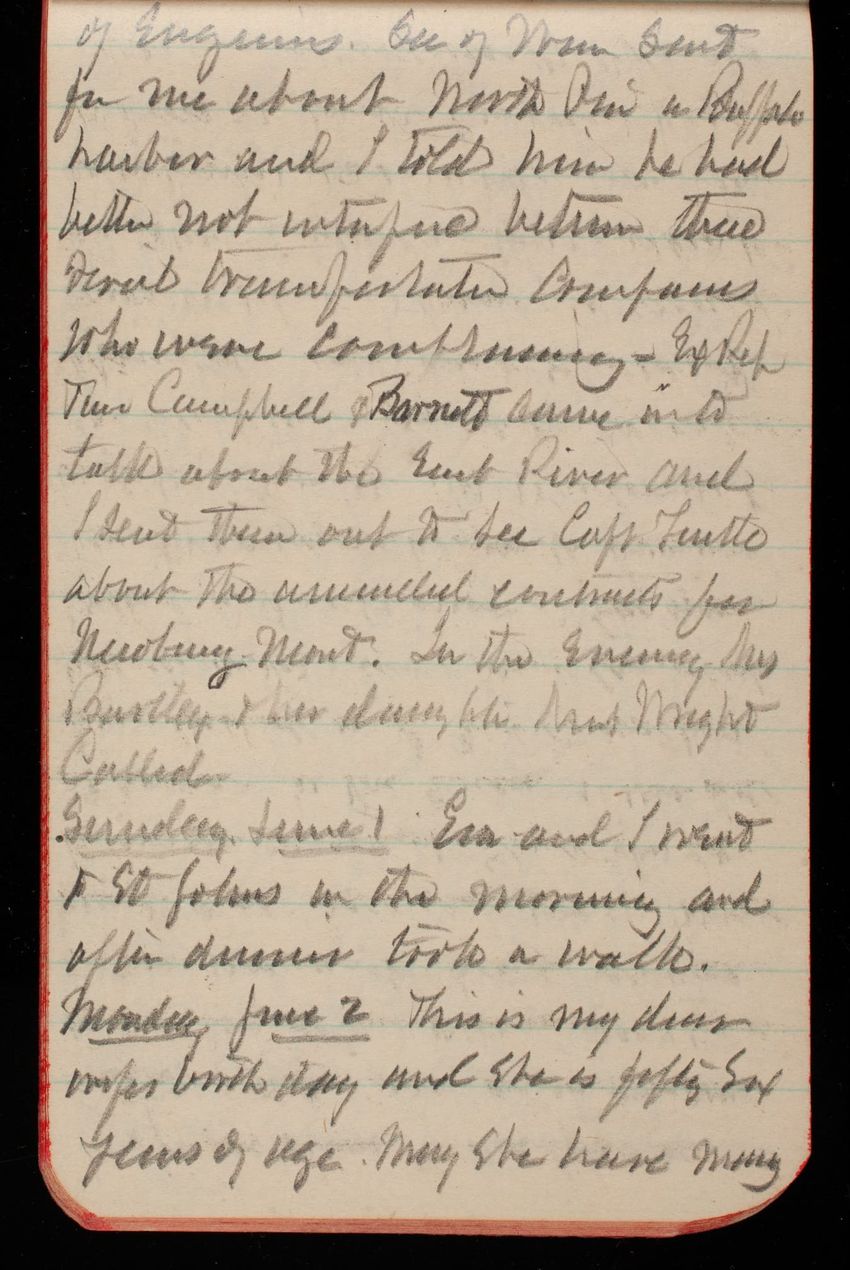 of Engineers. Sec of War Sent
for me about North Pier a Buffalo
harbor and I told him he had
better not interfere between three
rival transportation Companies
who were combining - Ex Rep
Tim Campbell & Barnett came in to
talk about the East River and
I sent them out to see Capt
about the annulled contracts for
Newbury Mont. In the Evening Mrs
Bartley & her daughter Mrs Wright
Called
Sunday June 1 Em and I went
to St Johns in the morning and
after dinner took a walk.
Monday June 2 This is my dear
wifes birth day and She is fifty Six
years of age. May She have many